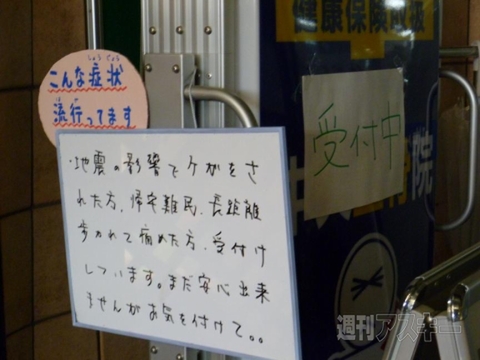 健康保険取扱
こんな症状
しょうじょう
流行ってます
受付中
院
・地震の影響でケガをさ
れた方、帰宅難民、長距離
歩かれて痛めた方、受付け
しています。まだ安心出来
ませんがお気を付けて。。
週刊アスキー